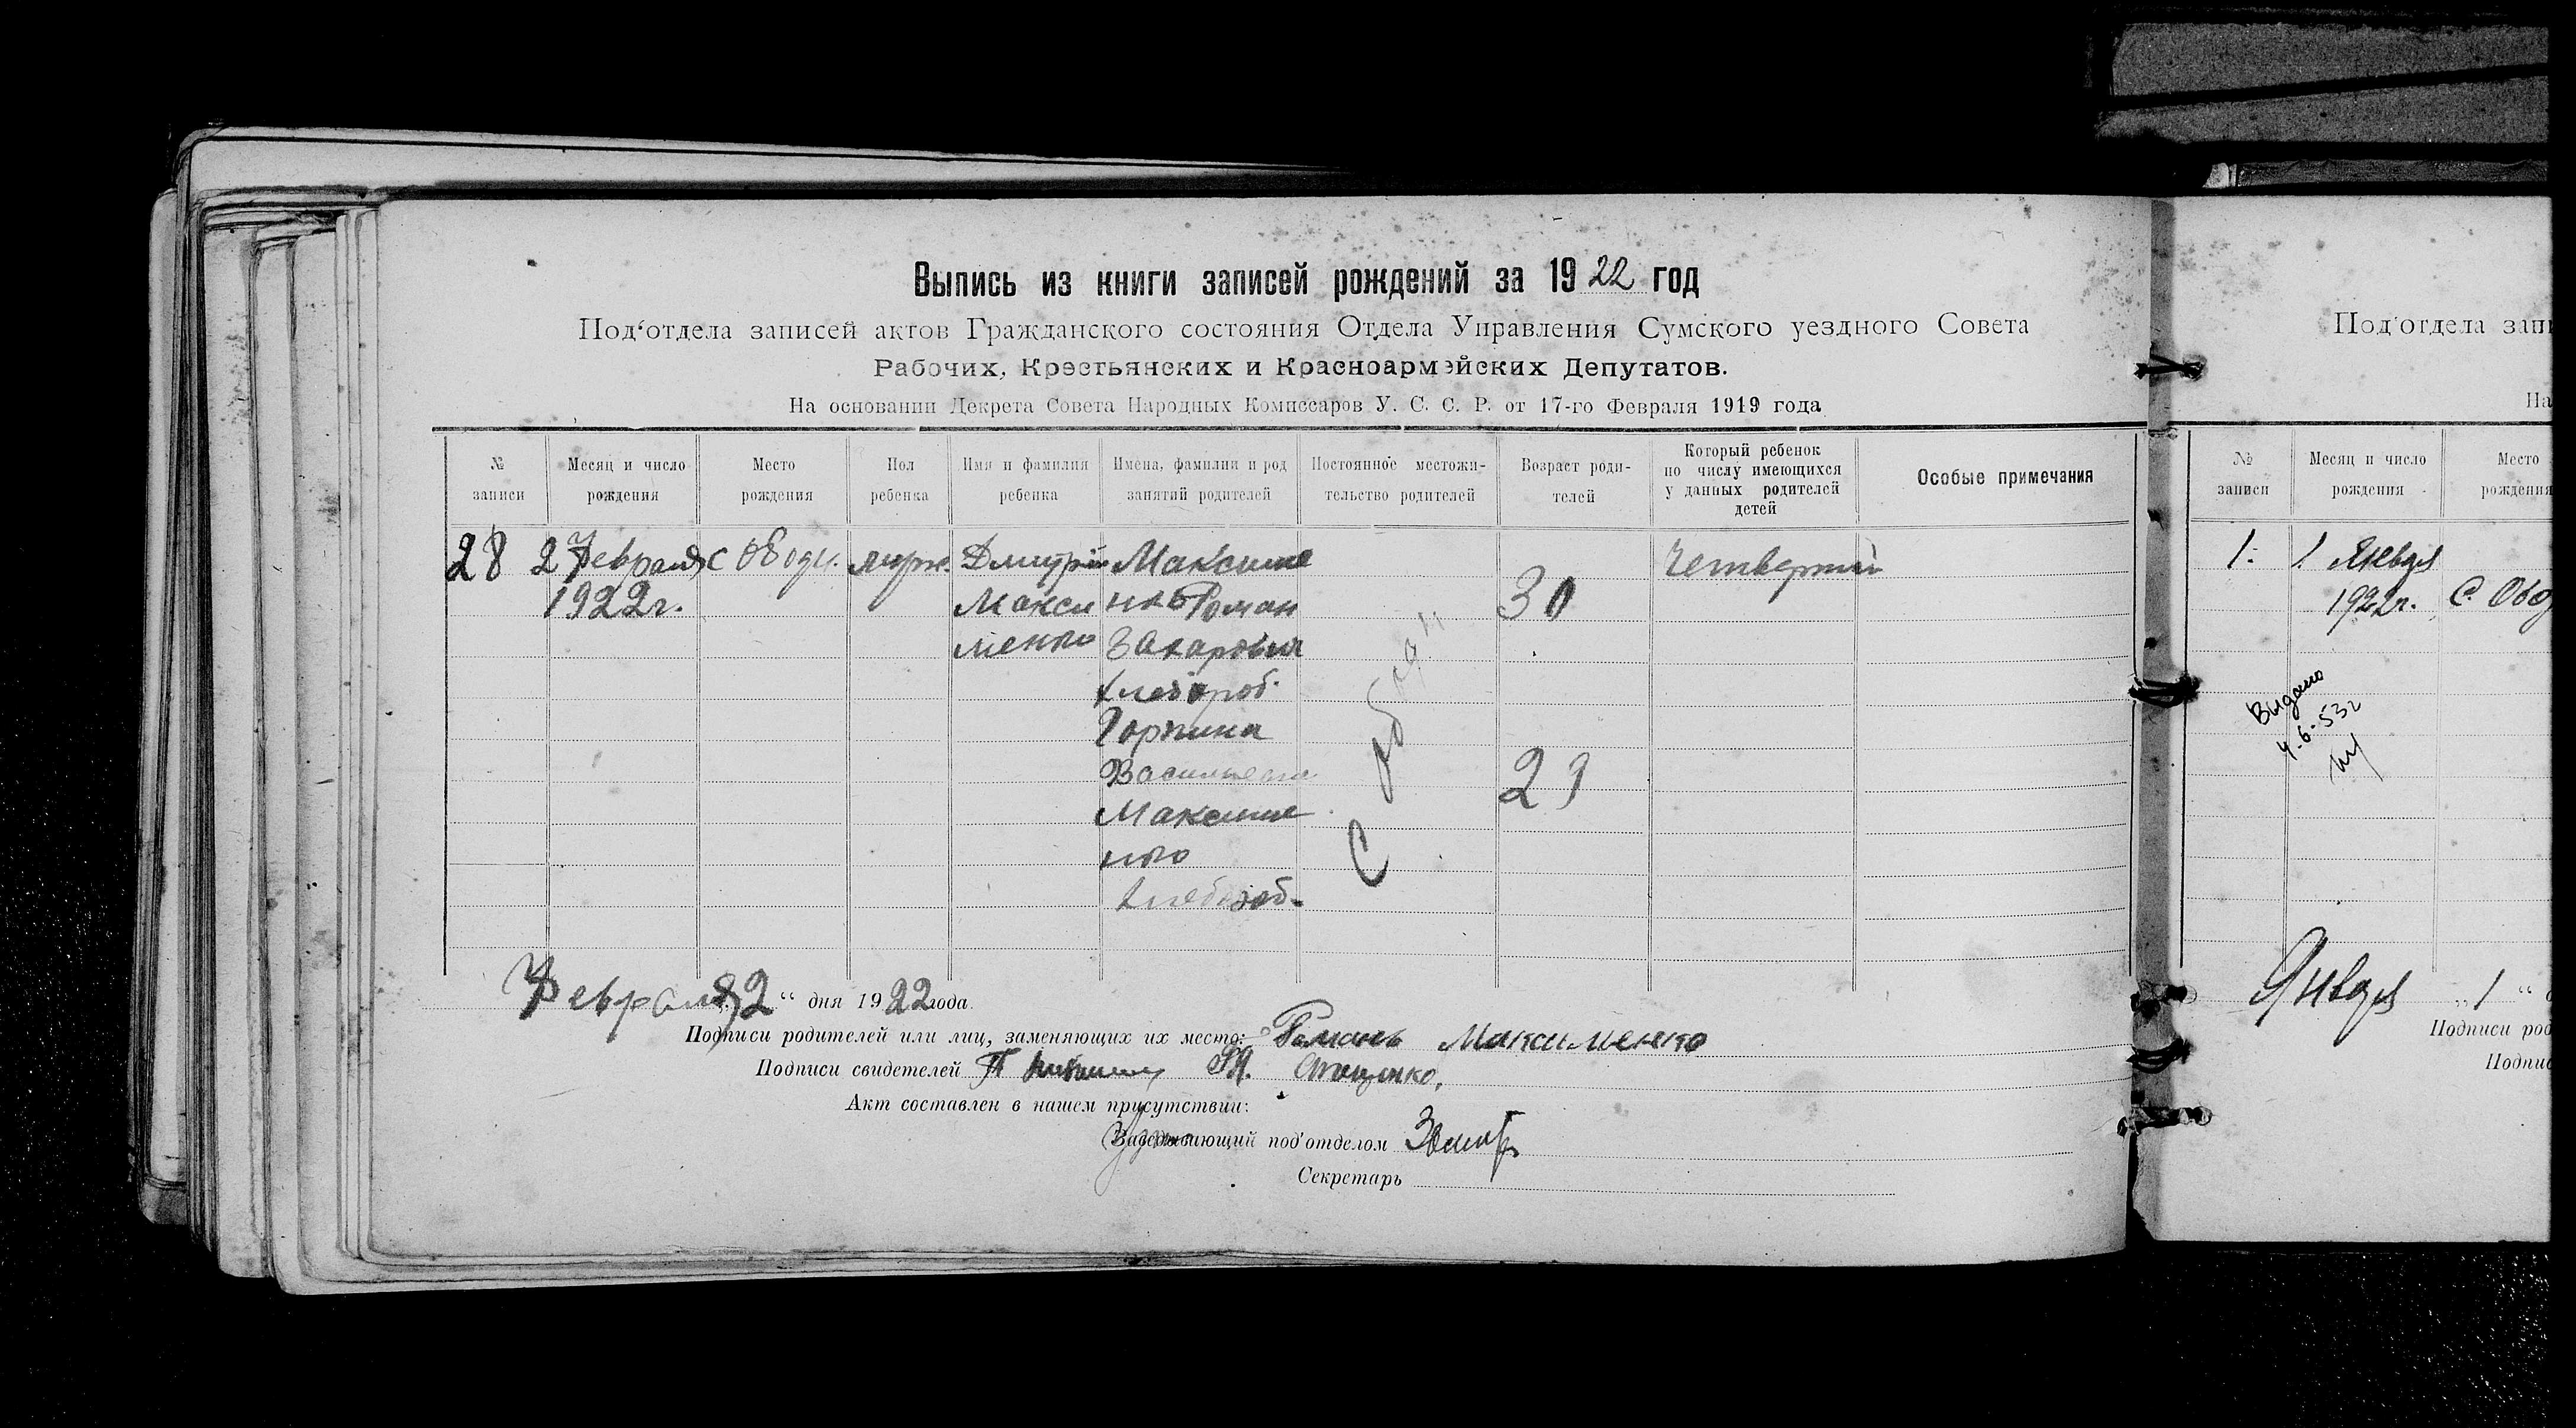 Выпись из книги записей рождений за 1922 год
Под'отдела записей актов Гражданского состояния Отдела Управления Сумского уездного Совета
Рабочих, Крестьянских и Красноармейских Депутатов.
На основании Декрета Совета Народных Комиссаров У. С. С. Р. от 17-го Февраля 1919 года
№ записи
Месяц и число рождения
Место рождения
Пол ребенка
Имя и фамилия ребенка
Имена, фамилии и род занятий родителей
Постоянное местожительство родителей
Возраст родителей
Который ребенок по числу имеющихся у данных родителей детей
Особые примечания
28
2 Февраля
1922г.
с Ободы.
муж.
Дмитрий
Макси
менко
Максиме
нко Роман
Захарович
хлебороб.
Горпина
Васильевна
Максиме
нко
хлебороб.
С
30
29
четвертый
Февраля „2“ дня 1922 года.
Подписи родителей или лиц, заменяющих их место: Романъ Максименко
Подписи свидетелей
Акт составлен в нашем присутствии:
Заведывающий под'отделом
Секретарь
Под'отдела запи
На
№ записи
Месяц и число рождения
Место рождения
1.
1 Января
1922г.
С. Обод
Видано
4.6.53г
Января „1“
Подписи род
Подпис